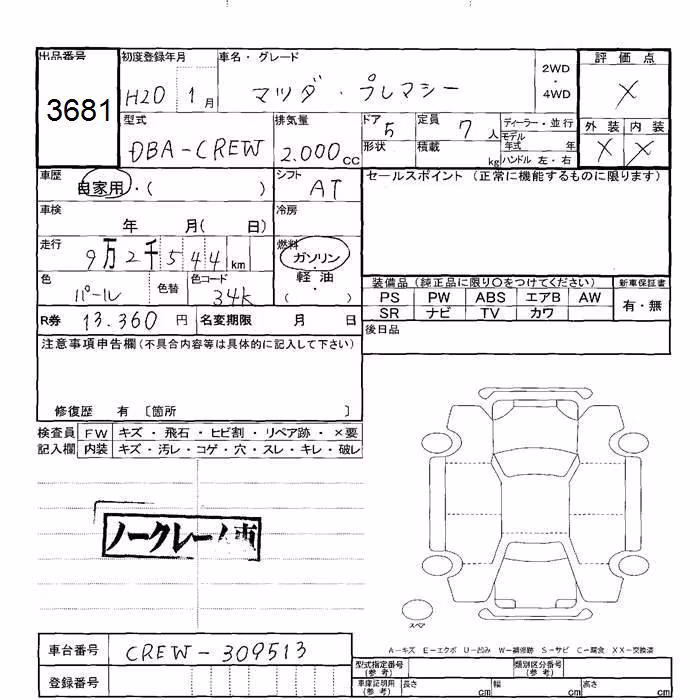 出品番号 初度登録年月 車名・グレード 2WD・4WD 評価点
3681 H20 1月 マツダ・プレマシー X
型式 排気量 ドア 5 定員 7人 ディーラー・並行 外装 内装
DBA-CREW 2.000cc 形状 積載 kg モデル年式 年 X X
ハンドル 左・右
車歴 シフト セールスポイント (正常に機能するものに限ります)
自家用・( ) AT
車検 年 月( 日) 冷房
走行 9万2千544km 燃料 ガソリン・軽油・( )
色 パール 色替 色コード 34K
装備品(純正品に限り〇をつけてください) 新車保証書
PS PW ABS エアB AW 有・無
SR ナビ TV カワ
R券 13.360円 名変期限 月 日 後日品
注意事項申告欄(不具合内容等は具体的に記入して下さい)
修復歴 有 〔箇所 〕
検査員 FW キズ・飛石・ヒビ割・リペア跡・×要
記入欄 内装 キズ・汚レ・コゲ・穴・スレ・キレ・破レ
ノークレーム車
スペア
A-キズ E-エクボ U-凹み W-補修跡 S-サビ C-腐食 XX-交換済
車台番号 CREW-309513
登録番号
型式指定番号(参考) 類別区分番号(参考)
車庫証明用(参考) 長さ cm 幅 cm 高さ cm